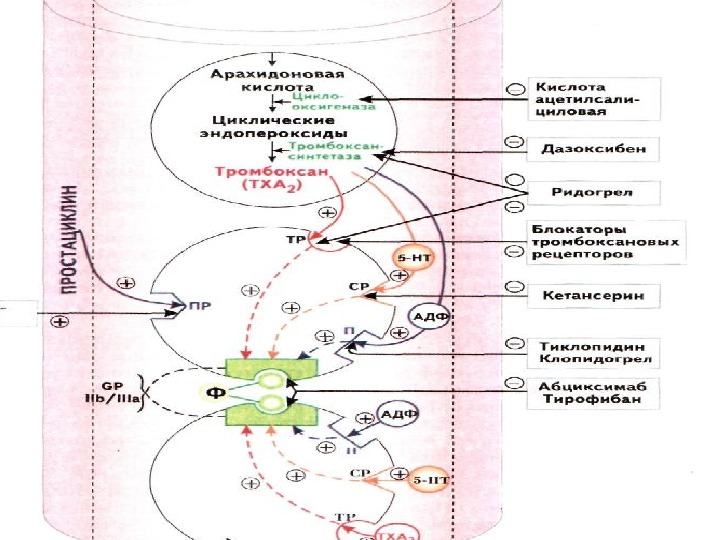 Арахидоновая
кислота
Цикло-
оксигеназа
Циклические
эндопероксиды
Тромбоксан-
синтетаза
Тромбоксан
(TXA2)
ПРОСТАЦИКЛИН
ТР
5-НТ
СР
ПР
АДФ
П
GP
IIb/IIIa
Ф
АДФ
П
СР
5-НТ
ТР
TXA2
Кислота
ацетилсали-
циловая
Дазоксибен
Ридогрел
Блокаторы
тромбоксановых
рецепторов
Кетансерин
Тиклопидин
Клопидогрел
Абциксимаб
Тирофибан